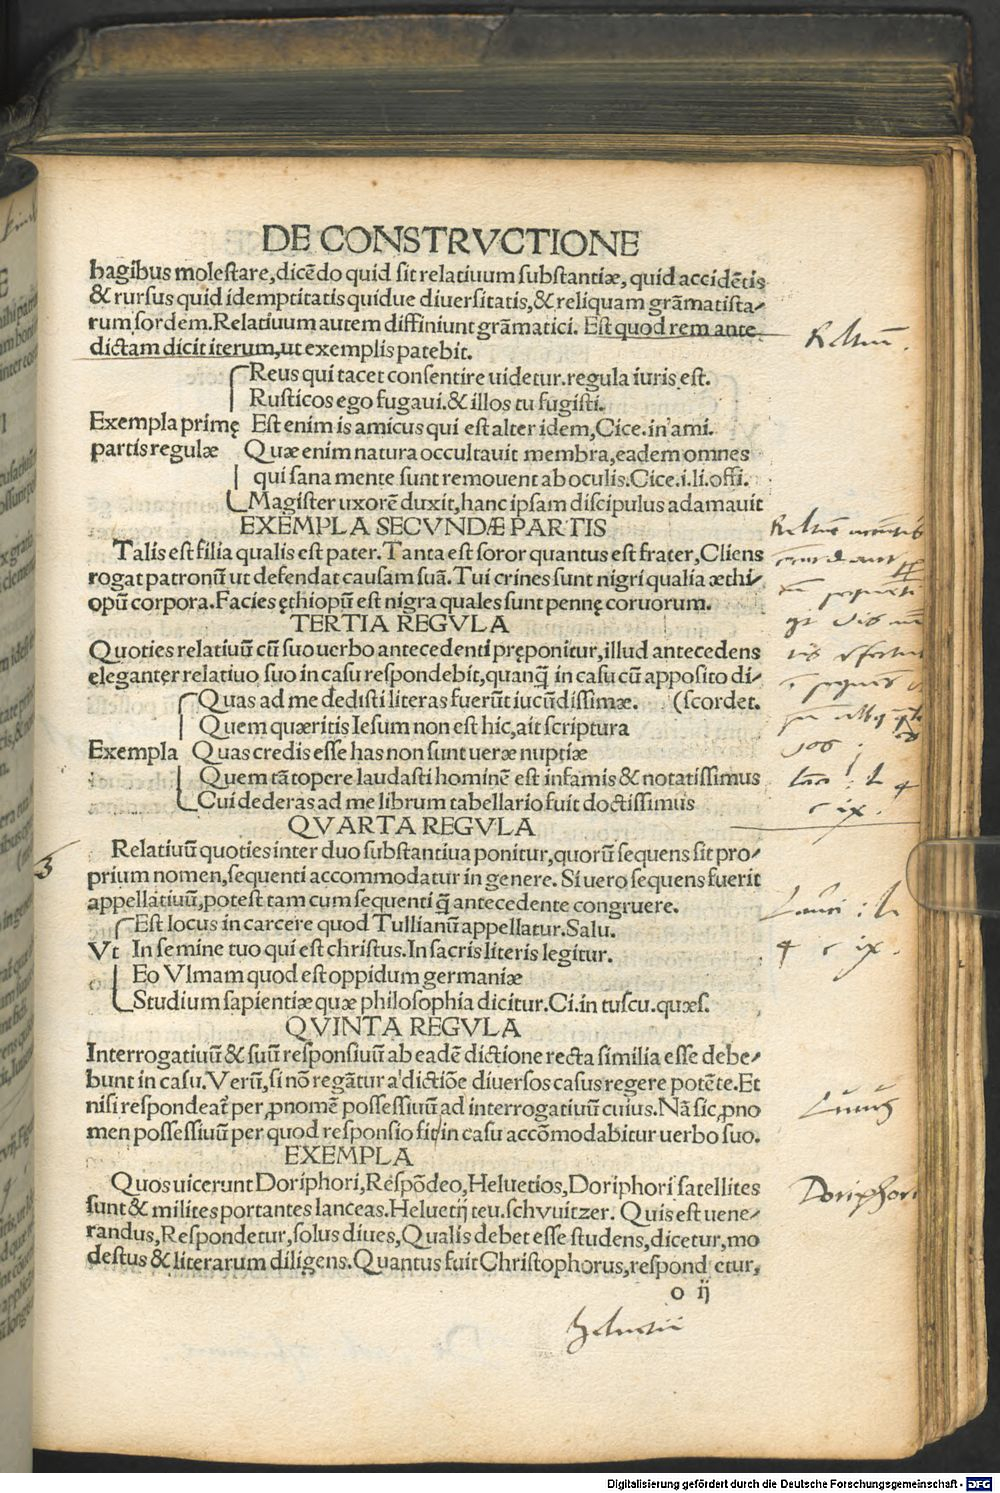 DE CONSTRVCTIONE
bagibus molestare, dicēdo quid sit relatiuum substantiæ, quid accidētis
& rursus quid idemptitatis quidue diuersitatis, & reliquam grāmatista/
rum sordem. Relatiuum autem diffiniunt grāmatici. Est quod rem ante
dictam dicit iterum, ut exemplis patebit.
Reus qui tacet consentire uidetur. regula iuris est.
Rusticos ego fugaui. & illos tu fugisti.
Exempla primę Est enim is amicus qui est alter idem, Cice. in ami.
partis regulæ Quæ enim natura occultauit membra, eadem omnes
qui sana mente sunt remouent ab oculis. Cice. i. li. offi.
Magister uxorē duxit, hanc ipsam discipulus adamauit
EXEMPLA SECVNDÆ PARTIS
Talis est filia qualis est pater. Tanta est soror quantus est frater, Cliens
rogat patronū ut defendat causam suā. Tui crines sunt nigri qualia æthi/
opū corpora. Facies ęthiopū est nigra quales sunt pennę coruorum.
TERTIA REGVLA
Quoties relatiuū cū suo uerbo antecedenti pręponitur, illud antecedens
eleganter relatiuo suo in casu respondebit, quanq̄ in casu cū apposito di/
Quas ad me dedisti literas fuerūt iucūdissimæ. (scordet.
Quem quæritis Iesum non est hic, ait scriptura
Exempla Quas credis esse has non sunt ueræ nuptiæ
Quem tā topere laudasti hominē est infamis & notatissimus
Cui dederas ad me librum tabellario fuit doctissimus
QVARTA REGVLA
Relatiuū quoties inter duo substantiua ponitur, quorū sequens sit pro/
prium nomen, sequenti accommodatur in genere. Si uero sequens fuerit
appellatiuū, potest tam cum sequenti q̄ antecedente congruere.
Est locus in carcere quod Tullianū appellatur. Salu.
Vt In semine tuo qui est christus. In sacris literis legitur.
Eo Vlmam quod est oppidum germaniæ
Studium sapientiæ quæ philosophia dicitur. Ci. in tuscu. quæs.
QVINTA REGVLA
Interrogatiuū & suū responsiuū ab eadē dictione recta similia esse debe/
bunt in casu. Verū, si nō regātur a dictiōe diuersos casus regere potēte. Et
nisi respondeat̄ per ꝓnomē possessiuū ad interrogatiuū cuius. Nā sic, ꝓno
men possessiuū per quod responsio fit/in casu accōmodabitur uerbo suo.
EXEMPLA
Quos uicerunt Doriphori, Respōdeo, Heluetios, Doriphori satellites
sunt & milites portantes lanceas. Heluetij teu. schvuitzer. Quis est uene/
randus, Respondetur, solus diues, Qualis debet esse studens, dicetur, mo
destus & literarum diligens. Quantus fuit Christophorus, respond etur,
o ij
Doriphori
Heluetii
Digitalisierung gefördert durch die Deutsche Forschungsgemeinschaft - DFG